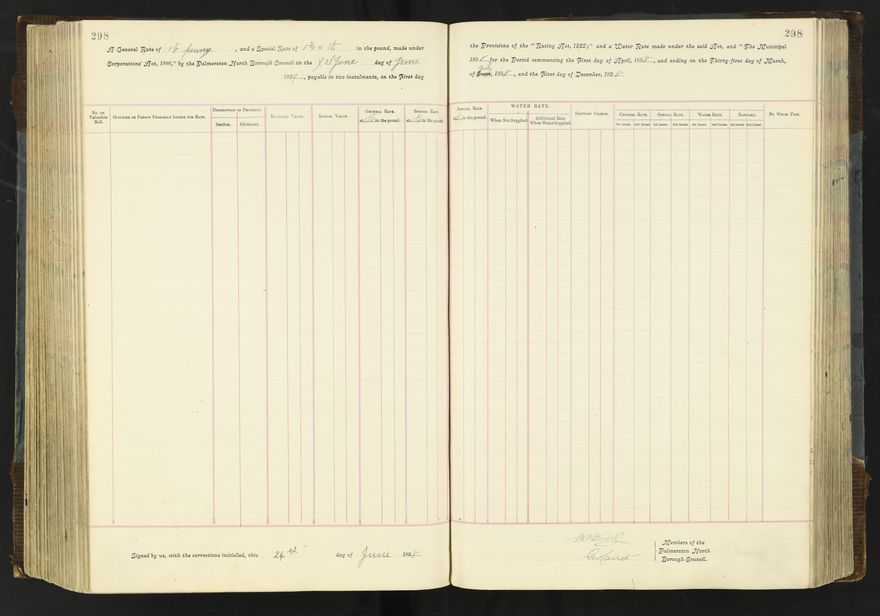 298
A General Rate of penny, and a Special Rate of in the pound, made under
Corporations' Act, 1886," by the Palmerston North Borough Council on the day of June
189 , payable in two instalments, on the First day
No. on Valuation Roll.
Occupier or Person Primarily Liable for Rate.
Description of Property.
Section. Allotment.
Rateable Value.
Annual Value.
General Rate
at in the pound.
Special Rate
at in the pound.
Signed by us, with the corrections initialled, this 24th day of June 189
298
the Provisions of the "Rating Act, 1882;" and a Water Rate made under the said Act, and "The Municipal
189 for the Period commencing the First day of April, 189 , and ending on the Thirty-first day of March,
July
of June, 189 , and the First day of December, 189
Special Rate
at in the pound.
WATER RATE.
When Not Supplied.
Additional Rate When Water Supplied
Sanitary Charge.
General Rate. Special Rate. Water Rate. Sanitary.
1st Instal. 2nd Instal. 1st Instal. 2nd Instal. 1st Instal. 2nd Instal. 1st Instal. 2nd Instal.
By Whom Paid.
Members of the
Palmerston North
Borough Council.